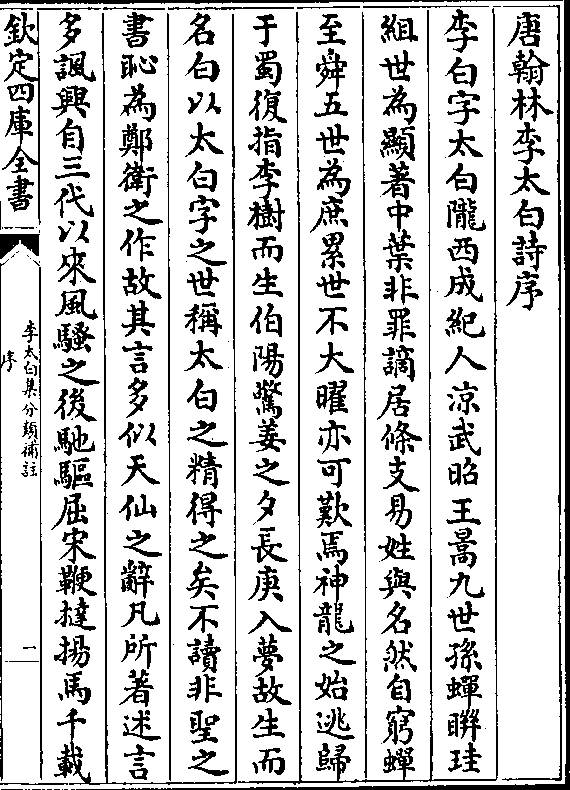 唐翰林李太白詩序
李白字太白隴西成紀人涼武昭王暠九世孫蟬聨珪
組世為顯著中葉非罪謫居條支易姓與名然自窮蟬
至舜五世為庶累世不大曜亦可歎焉神龍之始逃歸
于蜀復指李樹而生伯陽驚姜之夕長庚入夢故生而
名白以太白字之世稱太白之精得之矣不讀非聖之
書恥為鄭衛之作故其言多似天仙之辭凡所著述言
多諷興自三代以來風騷之後馳驅屈宋鞭撻揚馬千載
欽定四庫全書
李太白集分類補註
序
一